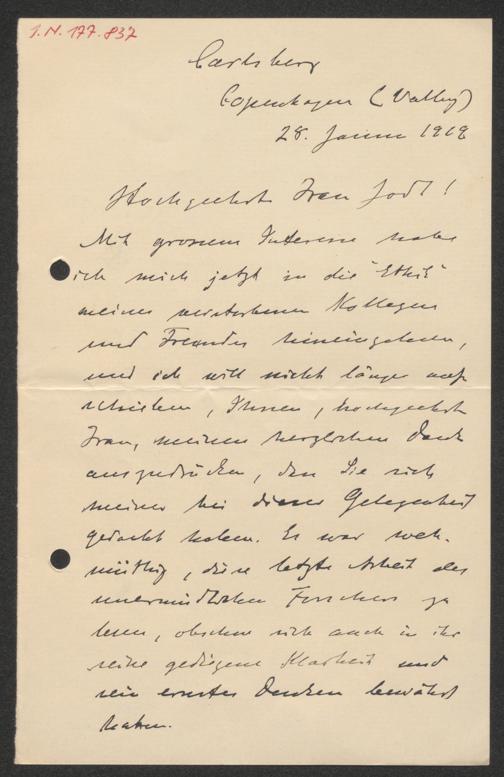 I.N. 177.837
Carlsberg
Copenhagen (Valby)
28. Januar 1918
Hochgeehrte Frau Jodl!
Mit grossem Interesse habe
ich mich jetzt in die "Ethik"
meines verstorbenen Kollegen
und Freundes hineingelesen,
und ich will nicht länger auf-
schieben, Ihnen, hochgeehrte
Frau, meinen herzlichen Dank
auszudrücken, dass Sie sich
meiner bei dieser Gelegenheit
gedacht haben. Es war weh-
müthig, diese letzte Arbeit des
unermüdlichen Forschers zu
lesen, obschon sich auch in ihr
seine gediegene Klarheit und
sein ernstes Denken bewährt
haben.